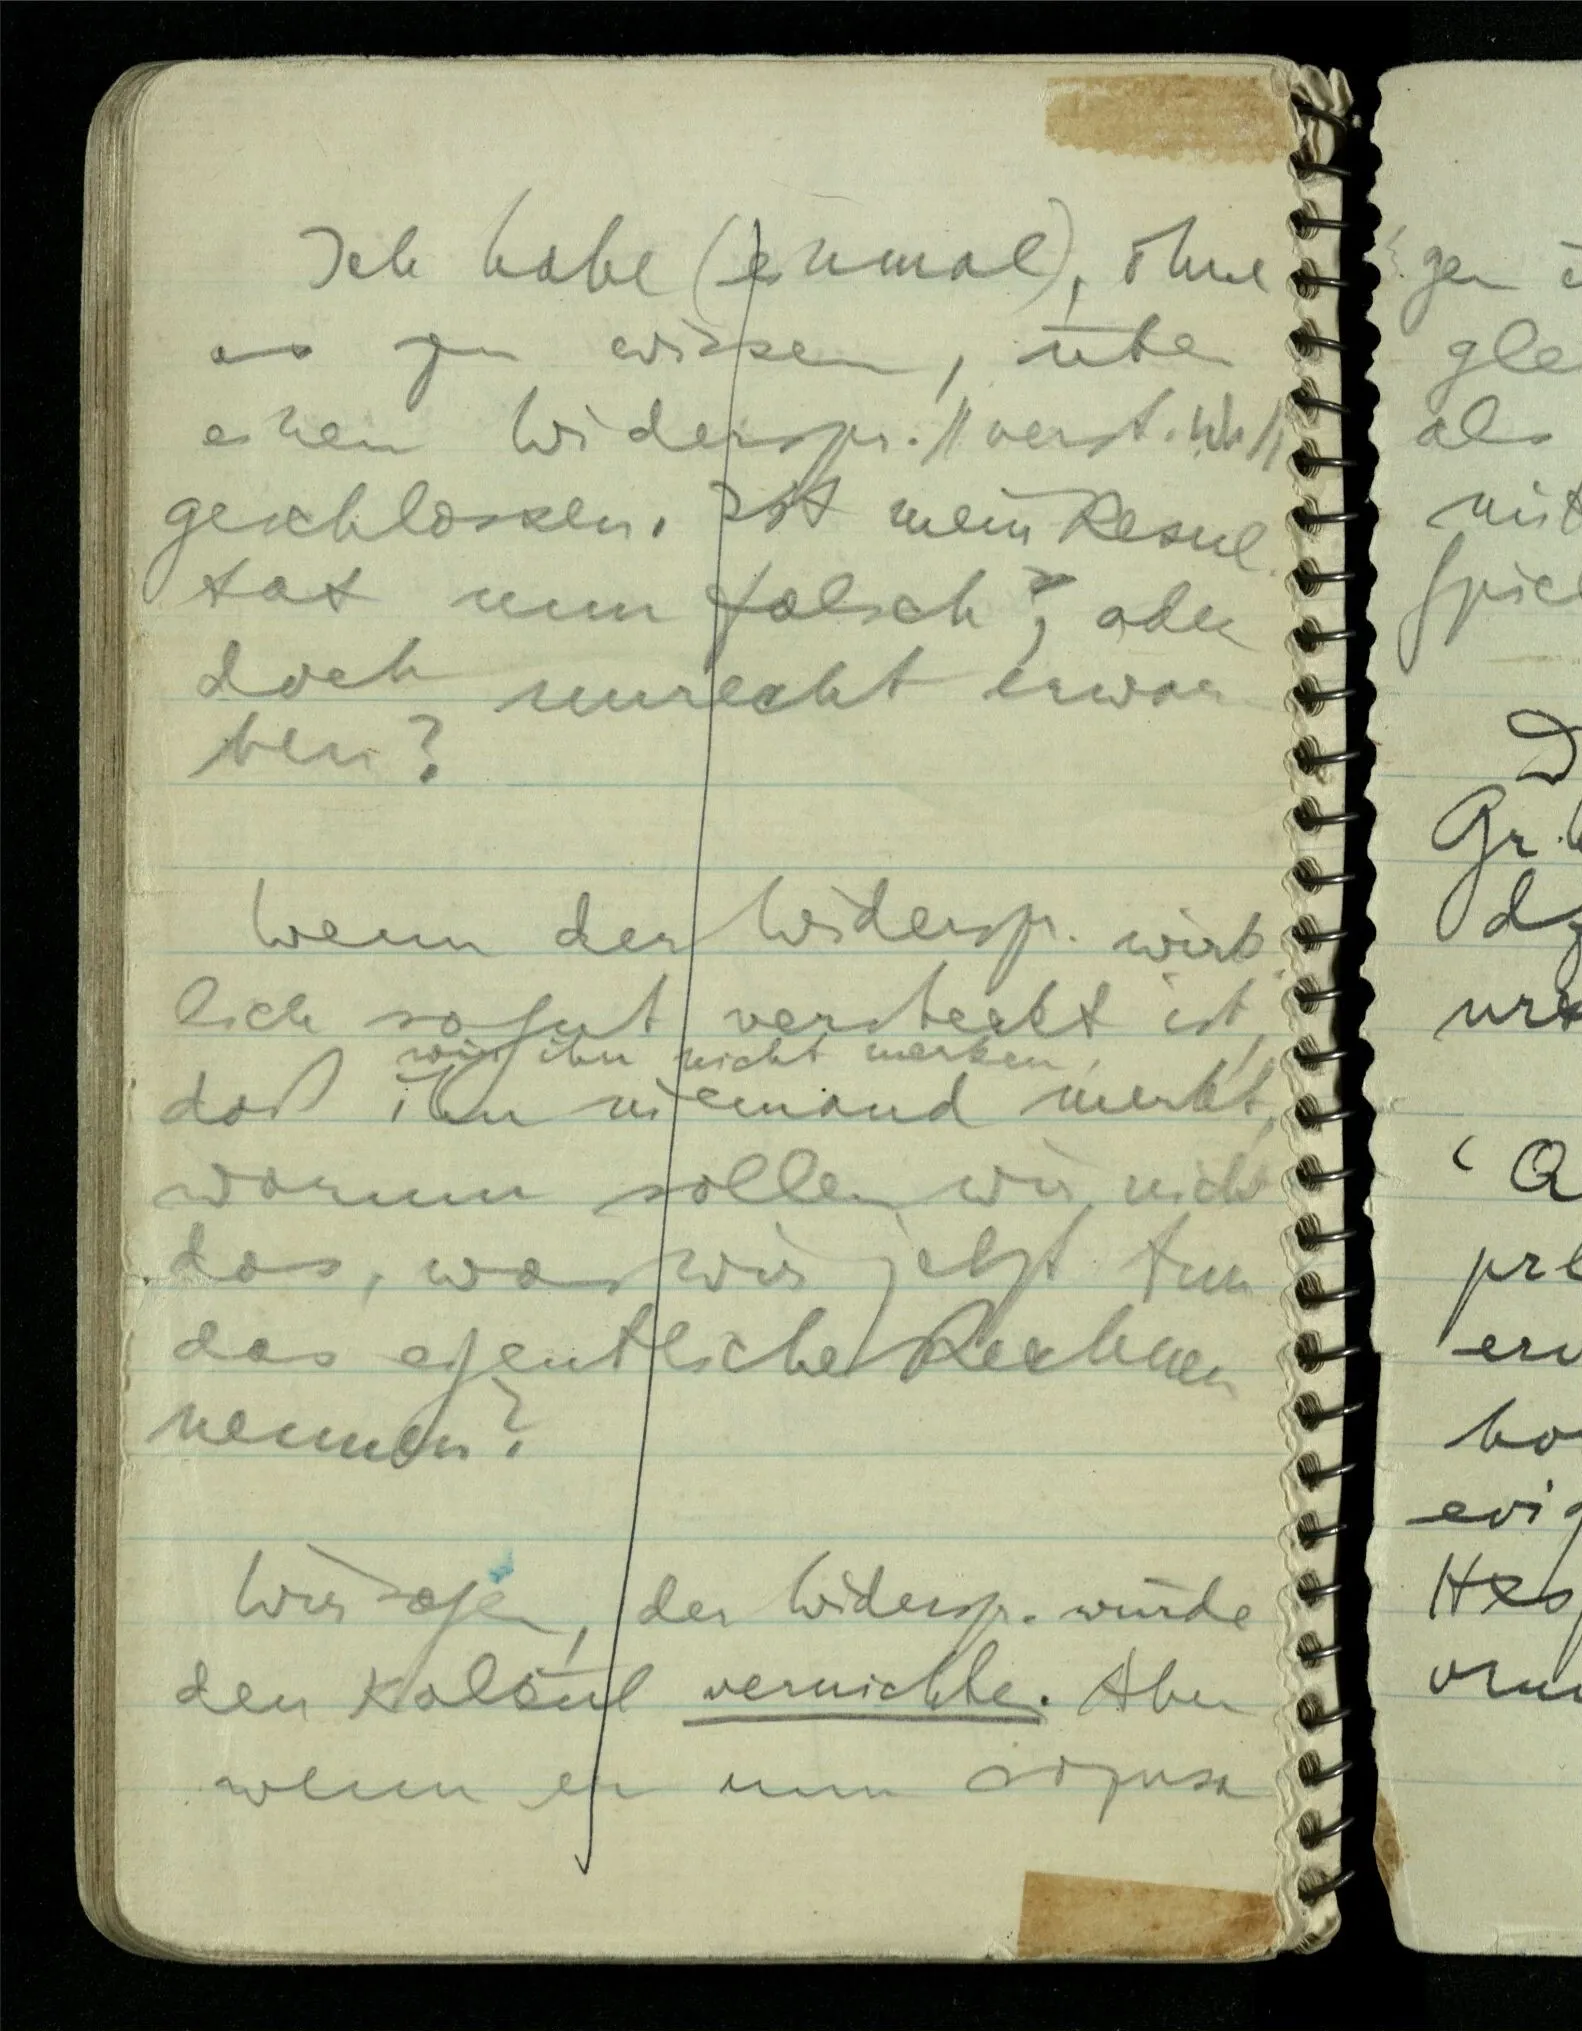 Ich habe (einmal), ohne
es zu wissen, über
einen Widerspr. // verst. Wi //
geschlossen. Ist mein Resul-
tat nun falsch?, oder
doch unrecht erwor-
ben?
Wenn der Widerspr. wirk-
lich so gut versteckt ist,
wir ihn nicht merken,
daß ihn niemand merkt,
warum sollen wir nicht
das, was wir jetzt tun
das eigentliche Rechnen
nennen?
Wir sagen, der Widerspr. würde
den Kalkül vernichten. Aber
wenn er nun sozusa
gen
gle
als
mit
spiel
D
Gr.
erv